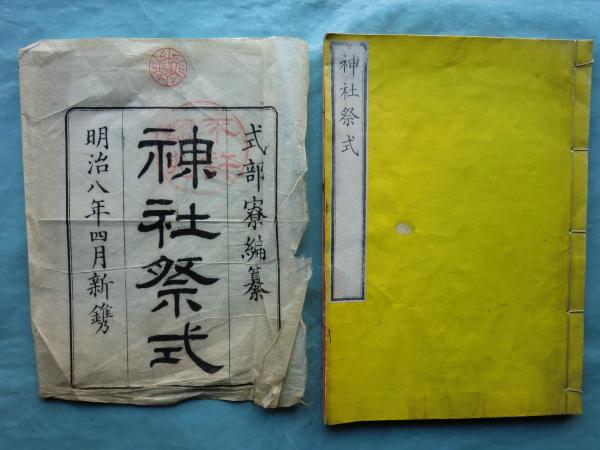 式部寮編纂
神社祭式
明治八年四月新鐫
神社祭式